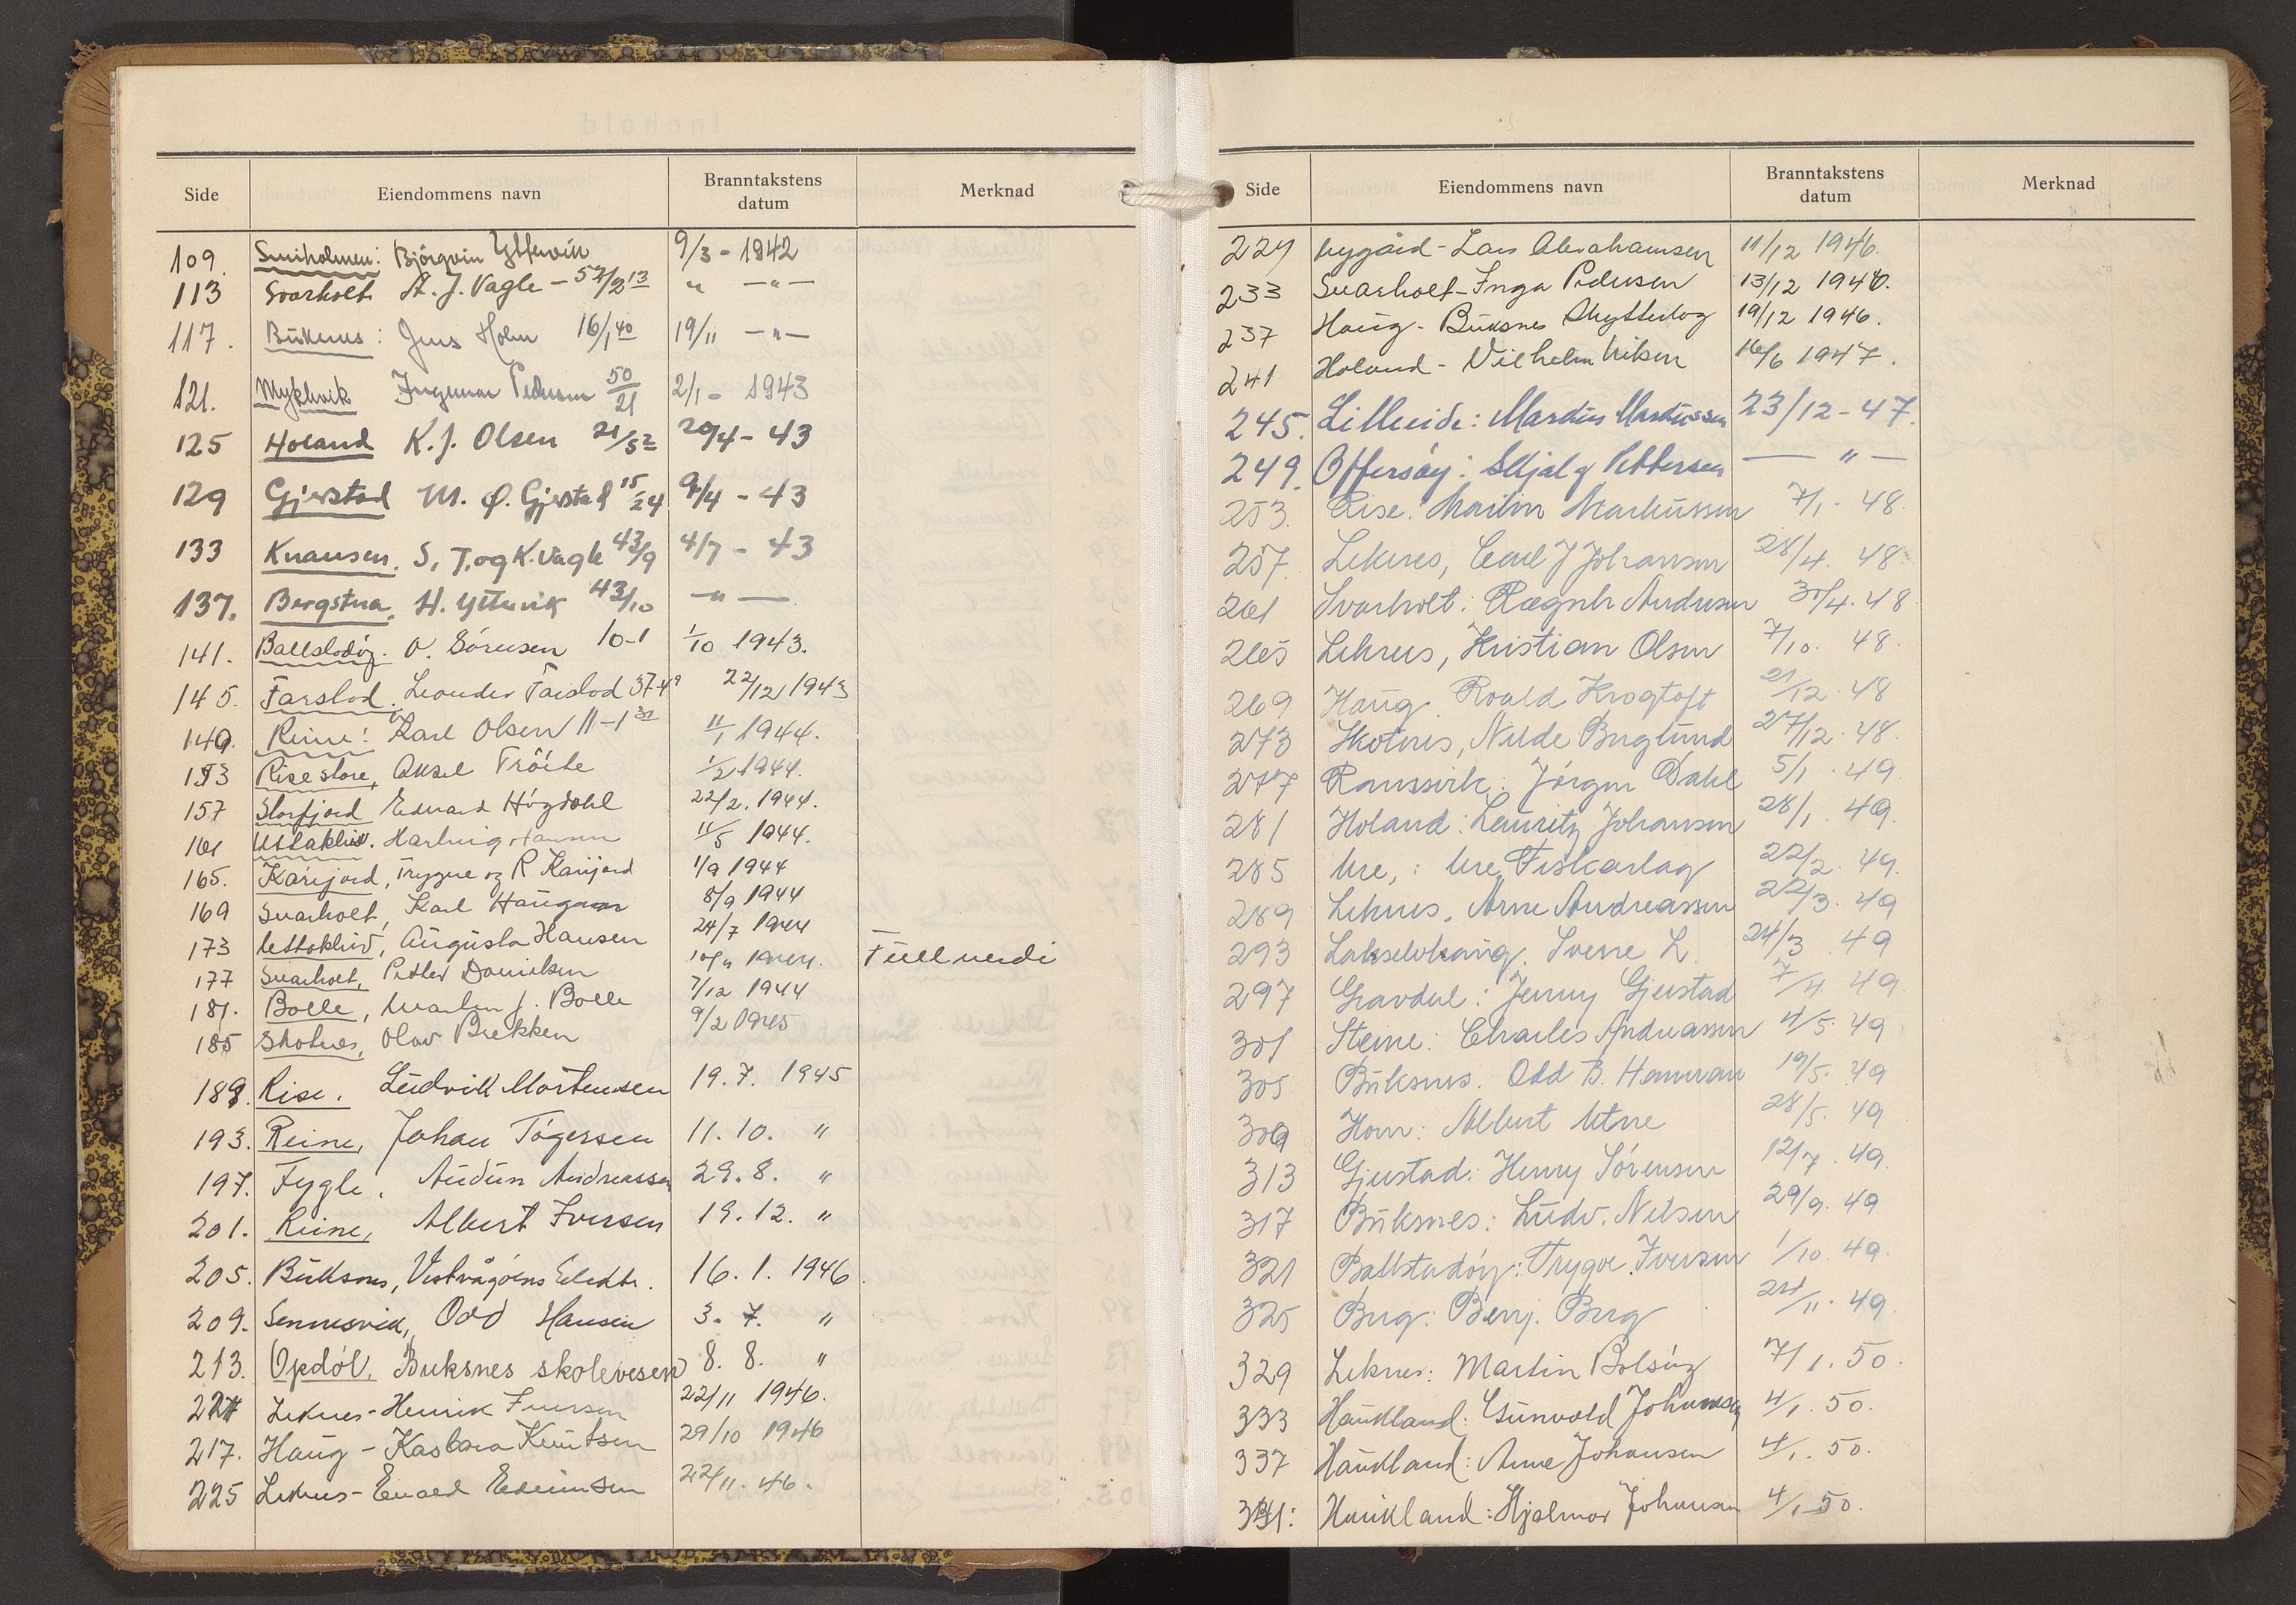 Side Eiendommens navn Branntakstens datum Merknad
109. Smiholmen: Björgvin Yttervik 9/3 - 1942
113 Svarholt A. J. Vagle - 52/213 " — " —
117. Büksnes: Jens Holm 16/140 19/11 — " —
121. Myklevik Ingemar Pedersen 50/21 2/1 - 1943
125 Holand K. J. Olsen 21/52 20/4 - 43
129 Gjerstad M. Ø. Gjerstad 15/24 9/4 - 43
133 Knausen. S, J. og K. Vagle 43/9 4/7 - 43
137. Bergstua, H. Yttervik 43/10 — " —
141. Ballstadöy. O. Sörensen 10-1 1/10 1943.
145. Farstad. Leander Farstad 37-49 22/12 1943
149. Reine: Karl Olsen 11-1 32 11/1 1944.
153 Rise store, Aksel Tröite 1/2 1944.
157 Storfjord Edvard Högdahl 22/2. 1944.
161 Uttakleiv. Hartvig Hansen 11/5 1944.
165. Karijord, Trygve og R Karijord 1/9 1944
169 Svarholt, Karl Haugan 8/9 1944
173 Uttakleiv, Augusta Hansen 24/7 1944
177 Svarholt, Petter Danielsen 1944. Full verdi
181. Bolle, Martin J. Bolle 7/12 1944
185 Skotnes, Olav Brekken 9/2 1945
189. Rise. Ludvik Mortensen 19. 7. 1945
193. Reine, Johan Tögersen 11. 10. "
197. Fygle, Audün Andreassen 29. 8. "
201. Reine, Albert Iversen 19. 12. "
205. Büksnes, Vestvågöens Elektr. 16. 1. 1946.
209. Sennesvik, Odd Hansen 3. 7. "
213. Opdöl, Buksnes skolevesen 8. 8. "
221 Leknes - Henrik Iversen 22/11 1946.
217. Haug - Kasbara Knutsen 29/10 1946
225 Leknes - Evald Edvinsen 22/11. 46.
Side Eiendommens navn Branntakstens datum Merknad
229 Nygård - Lars Abrahamsen 11/12 1946.
233 Svarholt - Inga Pedersen 13/12 1946.
237 Haug - Büksnes Skytterlag 19/12 1946.
241 Holand - Vilhelm Eriksen 16/6 1947.
245. Lilleeide: Mardüs Mardüssen 23/12 - 47.
249. Offersöy: Skjalg Pettersen — " —
253. Rise: Martin Markussen 7/1 - 48.
257. Leknes, Carl J Johansen 28/4. 48.
261 Svarholt: Ragnh Andersen 30/4. 48
265 Leknes, Kristian Olsen 7/10. 48.
269 Haug. Roald Krogtoft 21/12. 48
273 Skotnes, Nelde Berglund 27/12. 48.
277 Ramsvik: Jörgen Dahl 5/1. 49.
281 Holand: Lauritz Johansen 28/1. 49.
285 Ure,: Ure Fiskarlag 22/2. 49.
289 Leknes, Arne Andreassen 22/3. 49
293 Lakselvhaug. Sverre L. 24/3. 49
297 Gravdal: Jenny Gjerstad 7/4 49
301 Steine: Charles Andreassen 4/5. 49
305 Büksnes. Odd B. Hammran 19/5. 49
309 Horn: Albert Utne 28/5. 49
313 Gjerstad: Henry Sörensen 12/7. 49.
317 Büksnes: Ludv. Nilsen 29/9. 49
321 Ballstadöy: Trygve Iversen 1/10. 49.
325 Berg: Benj. Berg 24/11. 49.
329 Leknes: Martin Bolsöy 7/1. 50.
333 Haukland: Gunvald Johansen 4/1. 50.
337 Haukland: Arne Johansen 4/1. 50.
341: Haukland: Hjalmar Johansen 4/1 50.